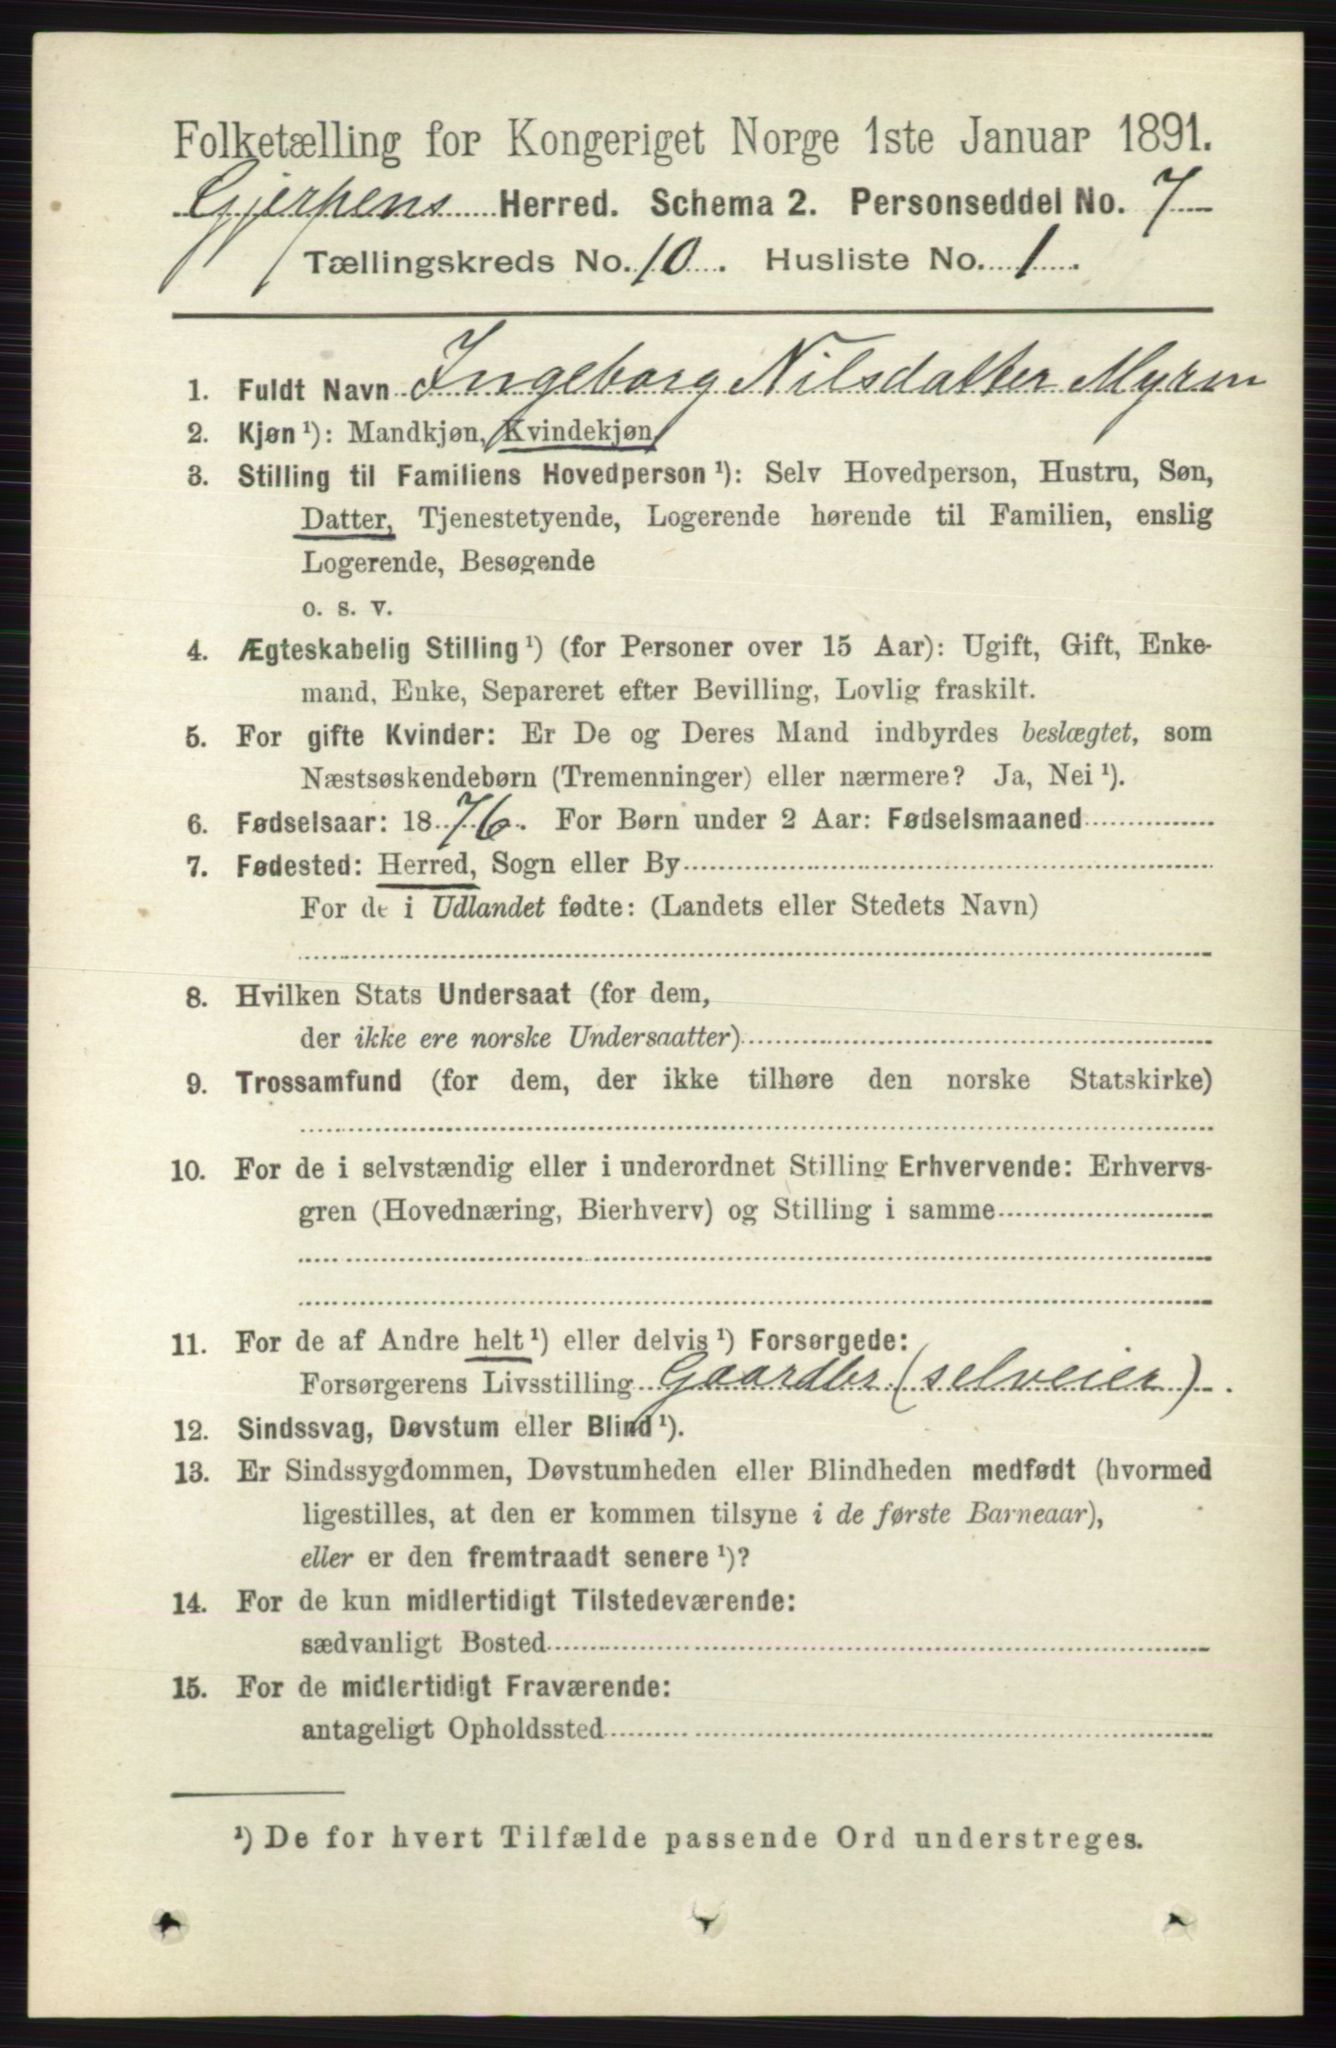 Folketælling for Kongeriget Norge 1ste Januar 1891.
Gjerpens Herred. Schema 2. Personseddel No. 7
Tællingskreds No. 10. Husliste No. 1.
1. Fuldt Navn Ingeborg Nilsdatter Myren
2. Kjøn ¹): Mandkjøn, Kvindekjøn
3. Stilling til Familiens Hovedperson ¹): Selv Hovedperson, Hustru, Søn,
Datter, Tjenestetyende, Logerende hørende til Familien, enslig
Logerende, Besøgende
o. s. v.
4. Ægteskabelig Stilling ¹) (for Personer over 15 Aar): Ugift, Gift, Enke-
mand, Enke, Separeret efter Bevilling, Lovlig fraskilt.
5. For gifte Kvinder: Er De og Deres Mand indbyrdes beslægtet, som
Næstsøskendebørn (Tremenninger) eller nærmere? Ja, Nei ¹).
6. Fødselsaar: 1876. For Børn under 2 Aar: Fødselsmaaned
7. Fødested: Herred, Sogn eller By
For de i Udlandet fødte: (Landets eller Stedets Navn)
8. Hvilken Stats Undersaat (for dem,
der ikke ere norske Undersaatter)
9. Trossamfund (for dem, der ikke tilhøre den norske Statskirke)
10. For de i selvstændig eller i underordnet Stilling Erhvervende: Erhvervs-
gren (Hovednæring, Bierhverv) og Stilling i samme
11. For de af Andre helt ¹) eller delvis ¹) Forsørgede:
Forsørgerens Livsstilling Gaardbr (selveier).
12. Sindssvag, Døvstum eller Blind ¹).
13. Er Sindssygdommen, Døvstumheden eller Blindheden medfødt (hvormed
ligestilles, at den er kommen tilsyne i de første Barneaar),
eller er den fremtraadt senere ¹)?
14. For de kun midlertidigt Tilstedeværende:
sædvanligt Bosted
15. For de midlertidigt Fraværende:
antageligt Opholdssted
¹) De for hvert Tilfælde passende Ord understreges.